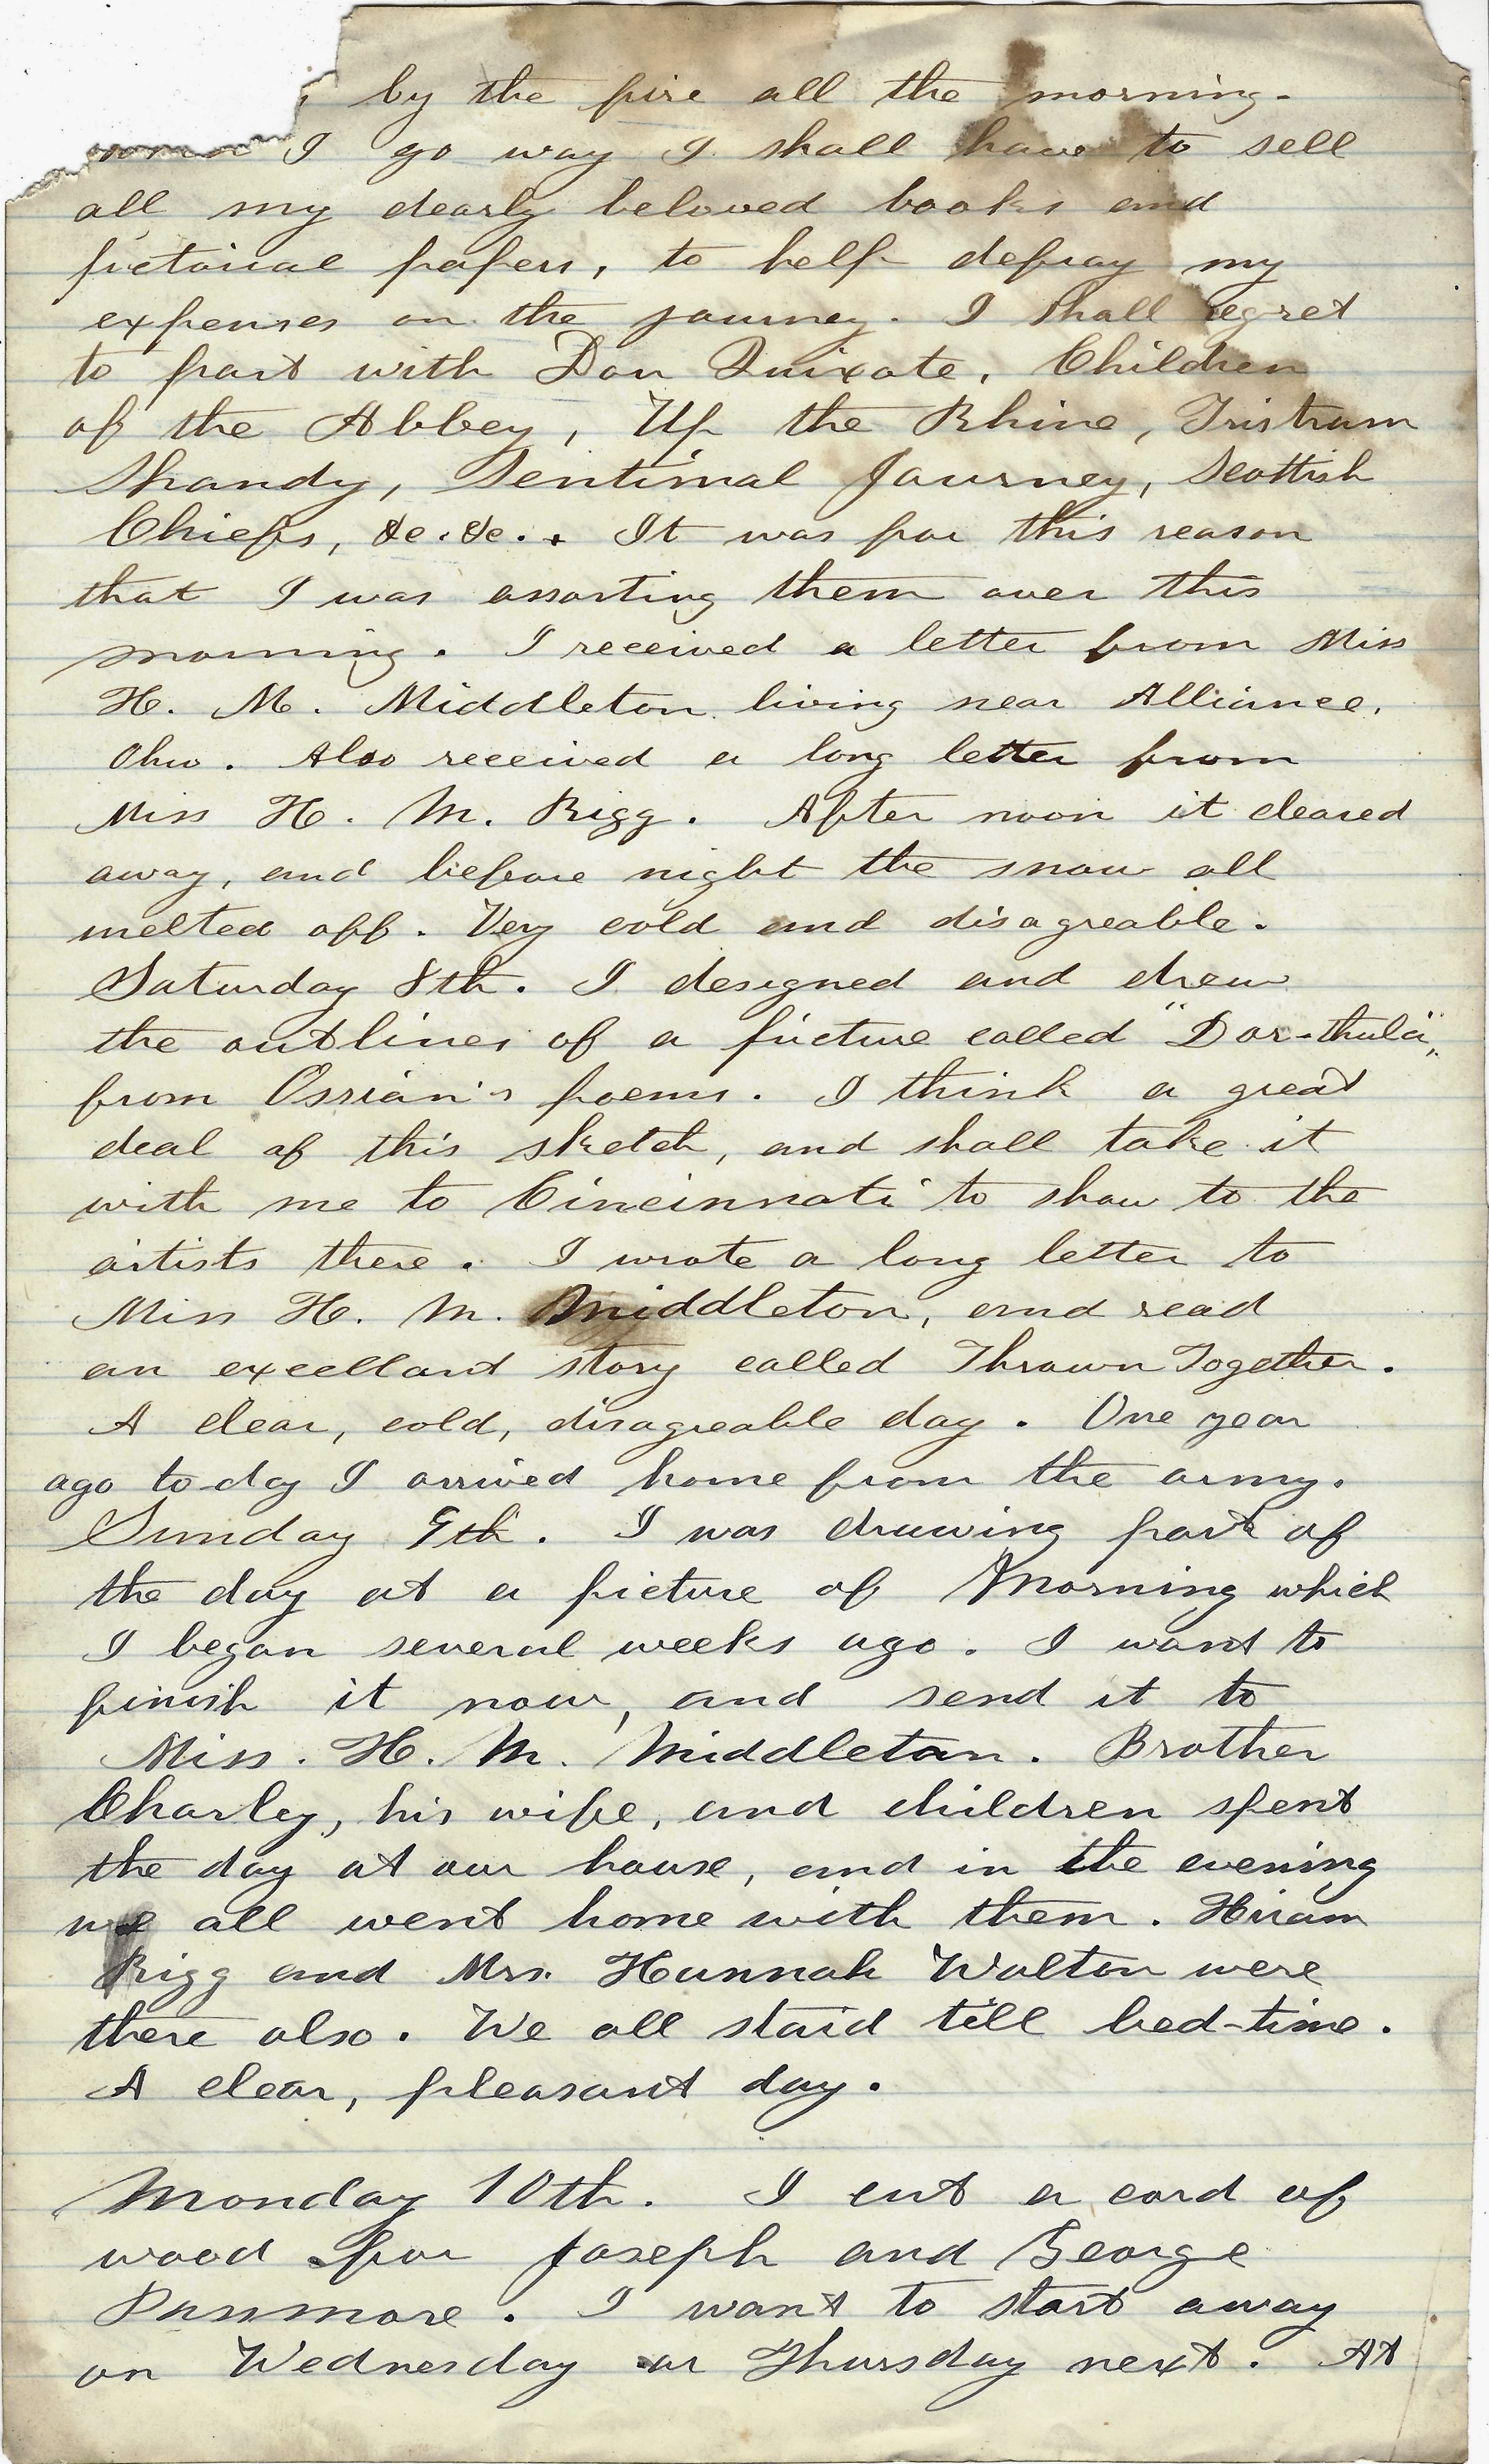 by the fire all the morning.
I go way I shall have to sell
all my dearly beloved books and
pictorial papers, to help defray my
expenses on the journey. I shall regret
to part with Don Quixote, Children
of the Abbey, Up the Rhine, Tristram
Shandy, Sentimal Journey, Scottish
Chiefs, &c. &c.. It was for this reason
that I was assorting them over this
morning. I received a letter from Miss
H. M. Middleton living near Alliance,
Ohio. Also received a long letter from
Miss H. M. Rigg. After noon it cleared
away, and before night the snow all
melted off. Very cold and disagreable.
Saturday 8th. I designed and drew
the outlines of a picture called "Dar-thula",
from Ossian's poems. I think a great
deal of this sketch, and shall take it
with me to Cincinnati to show to the
artists there. I wrote a long letter to
Miss H. M. Middleton, and read
an excellant story called Thrown Together.
A clear, cold, disagreable day. One year
ago to-day I arrived home from the army.
Sunday 9th. I was drawing part of
the day at a picture of Morning which
I began several weeks ago. I want to
finish it now, and send it to
Miss. H. M. Middleton. Brother
Charley, his wife, and children spent
the day at our house, and in the evening
we all went home with them. Hiram
Rigg and Mrs. Hannah Walton were
there also. We all staid till bed-time.
A clear, pleasant day.
Monday 10th. I cut a cord of
wood for Joseph and George
Passmore. I want to start away
on Wednesday or Thursday next. At